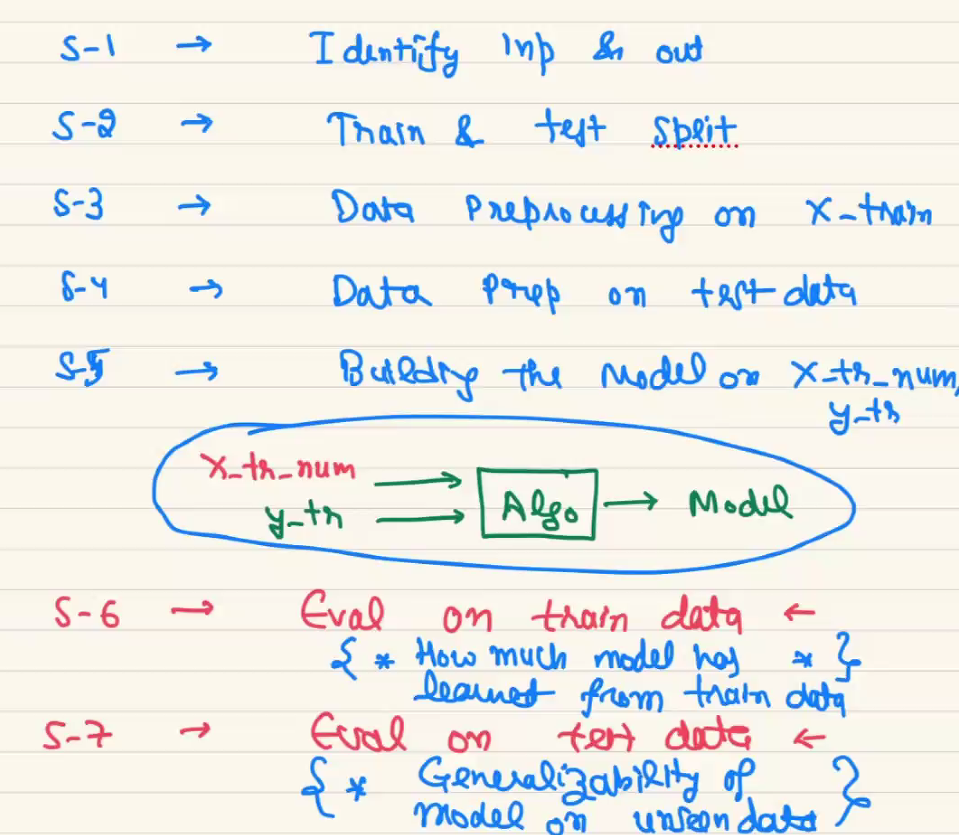 S-1 → Identify Inp & out
S-2 → Train & test split
S-3 → Data Preprocessing on X-train
S-4 → Data Prep on test data
S-5 → Building the Model on X-tr_num,
y-tr
X-tr-num
y-tr
Algo → Model
S-6 → Eval on train data ←
{ * How much model has * }
learned from train data
S-7 → Eval on test data ←
{ * Generalizability of }
Model on unseen data